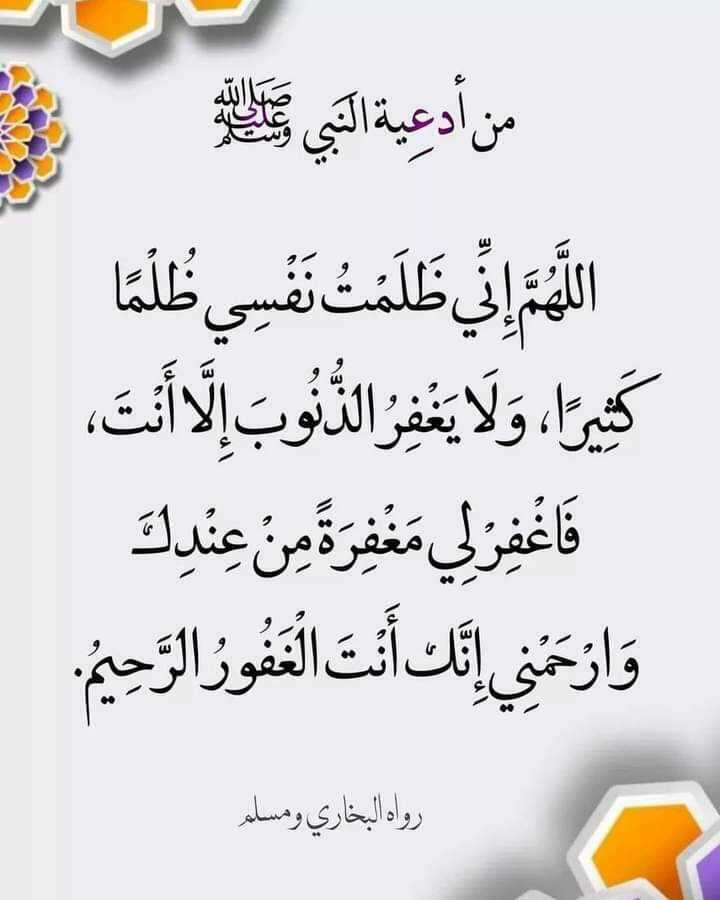 من أدعية النبي ﷺ
اللَّهُمَّ إِنِّي ظَلَمْتُ نَفْسِي ظُلْمًا
كَثِيرًا، وَلَا يَغْفِرُ الذُّنُوبَ إِلَّا أَنْتَ،
فَاغْفِرْ لِي مَغْفِرَةً مِنْ عِنْدِكَ
وَارْحَمْنِي إِنَّك أَنْتَ الْغَفُورُ الرَّحِيمُ.
رواه البخاري ومسلم